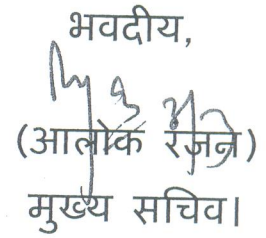 भवदीय,
(आलोक रंजन)
मुख्य सचिव।